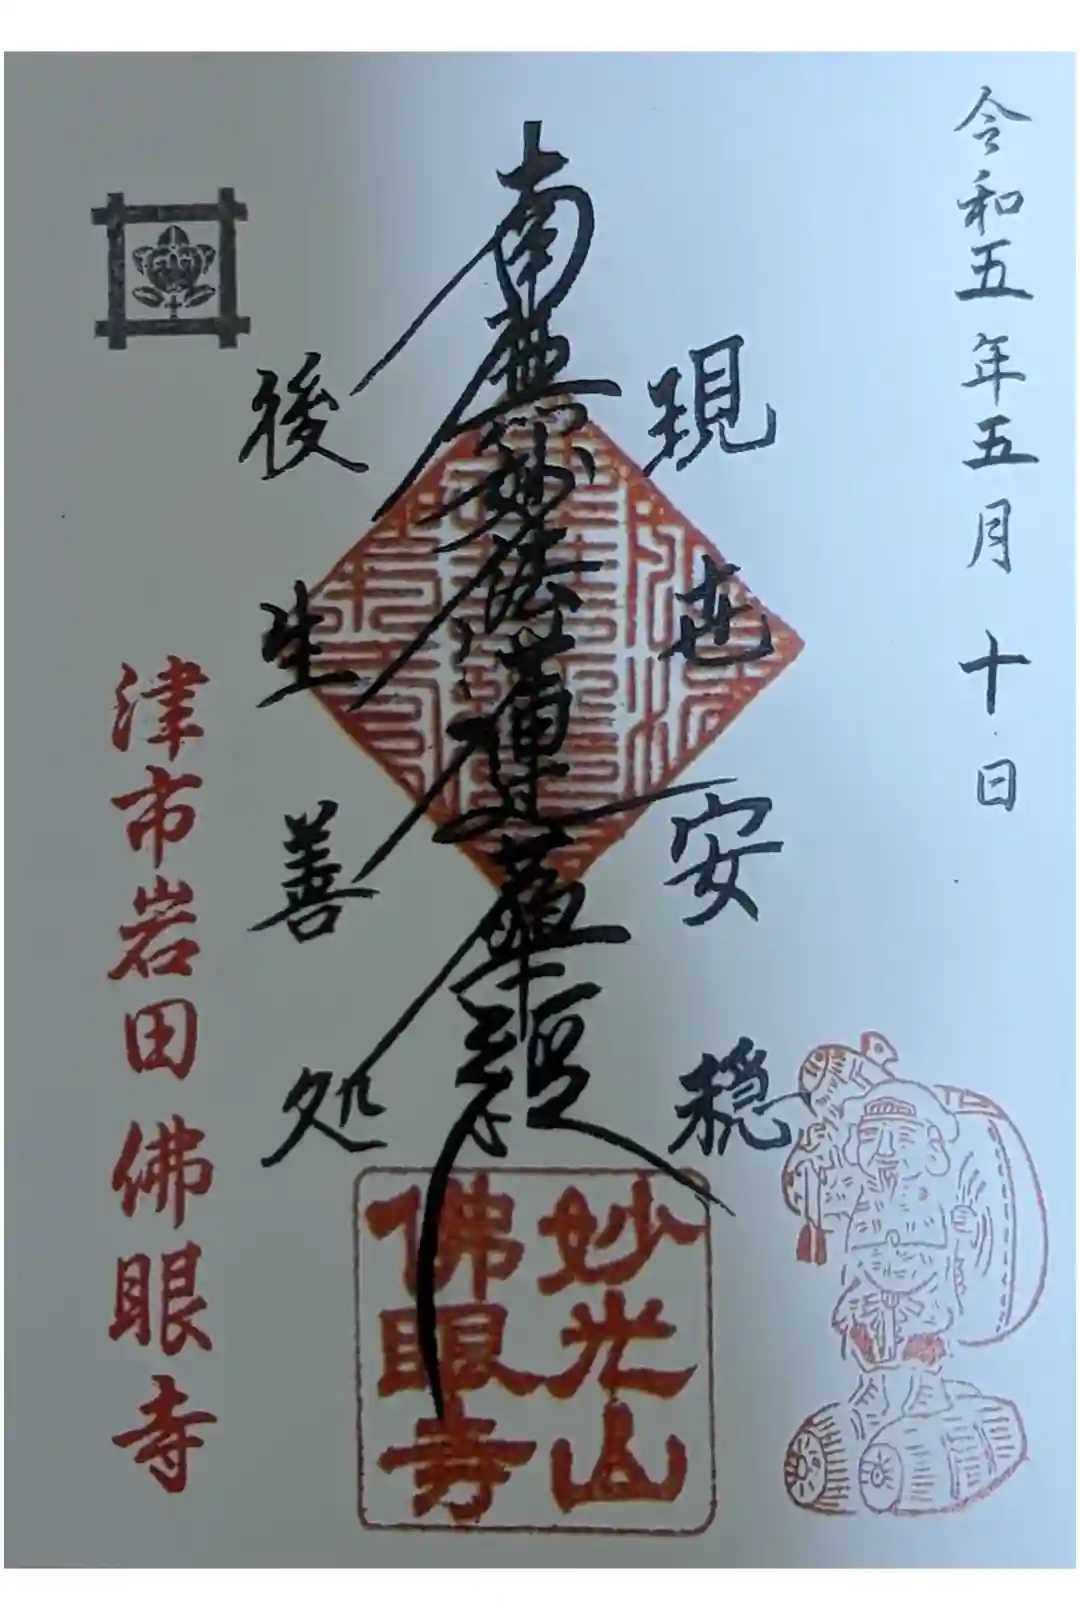 令和五年五月十日
現世安穏
南無妙法蓮華経
後生善処
津市岩田 佛眼寺
妙光山
佛眼寺